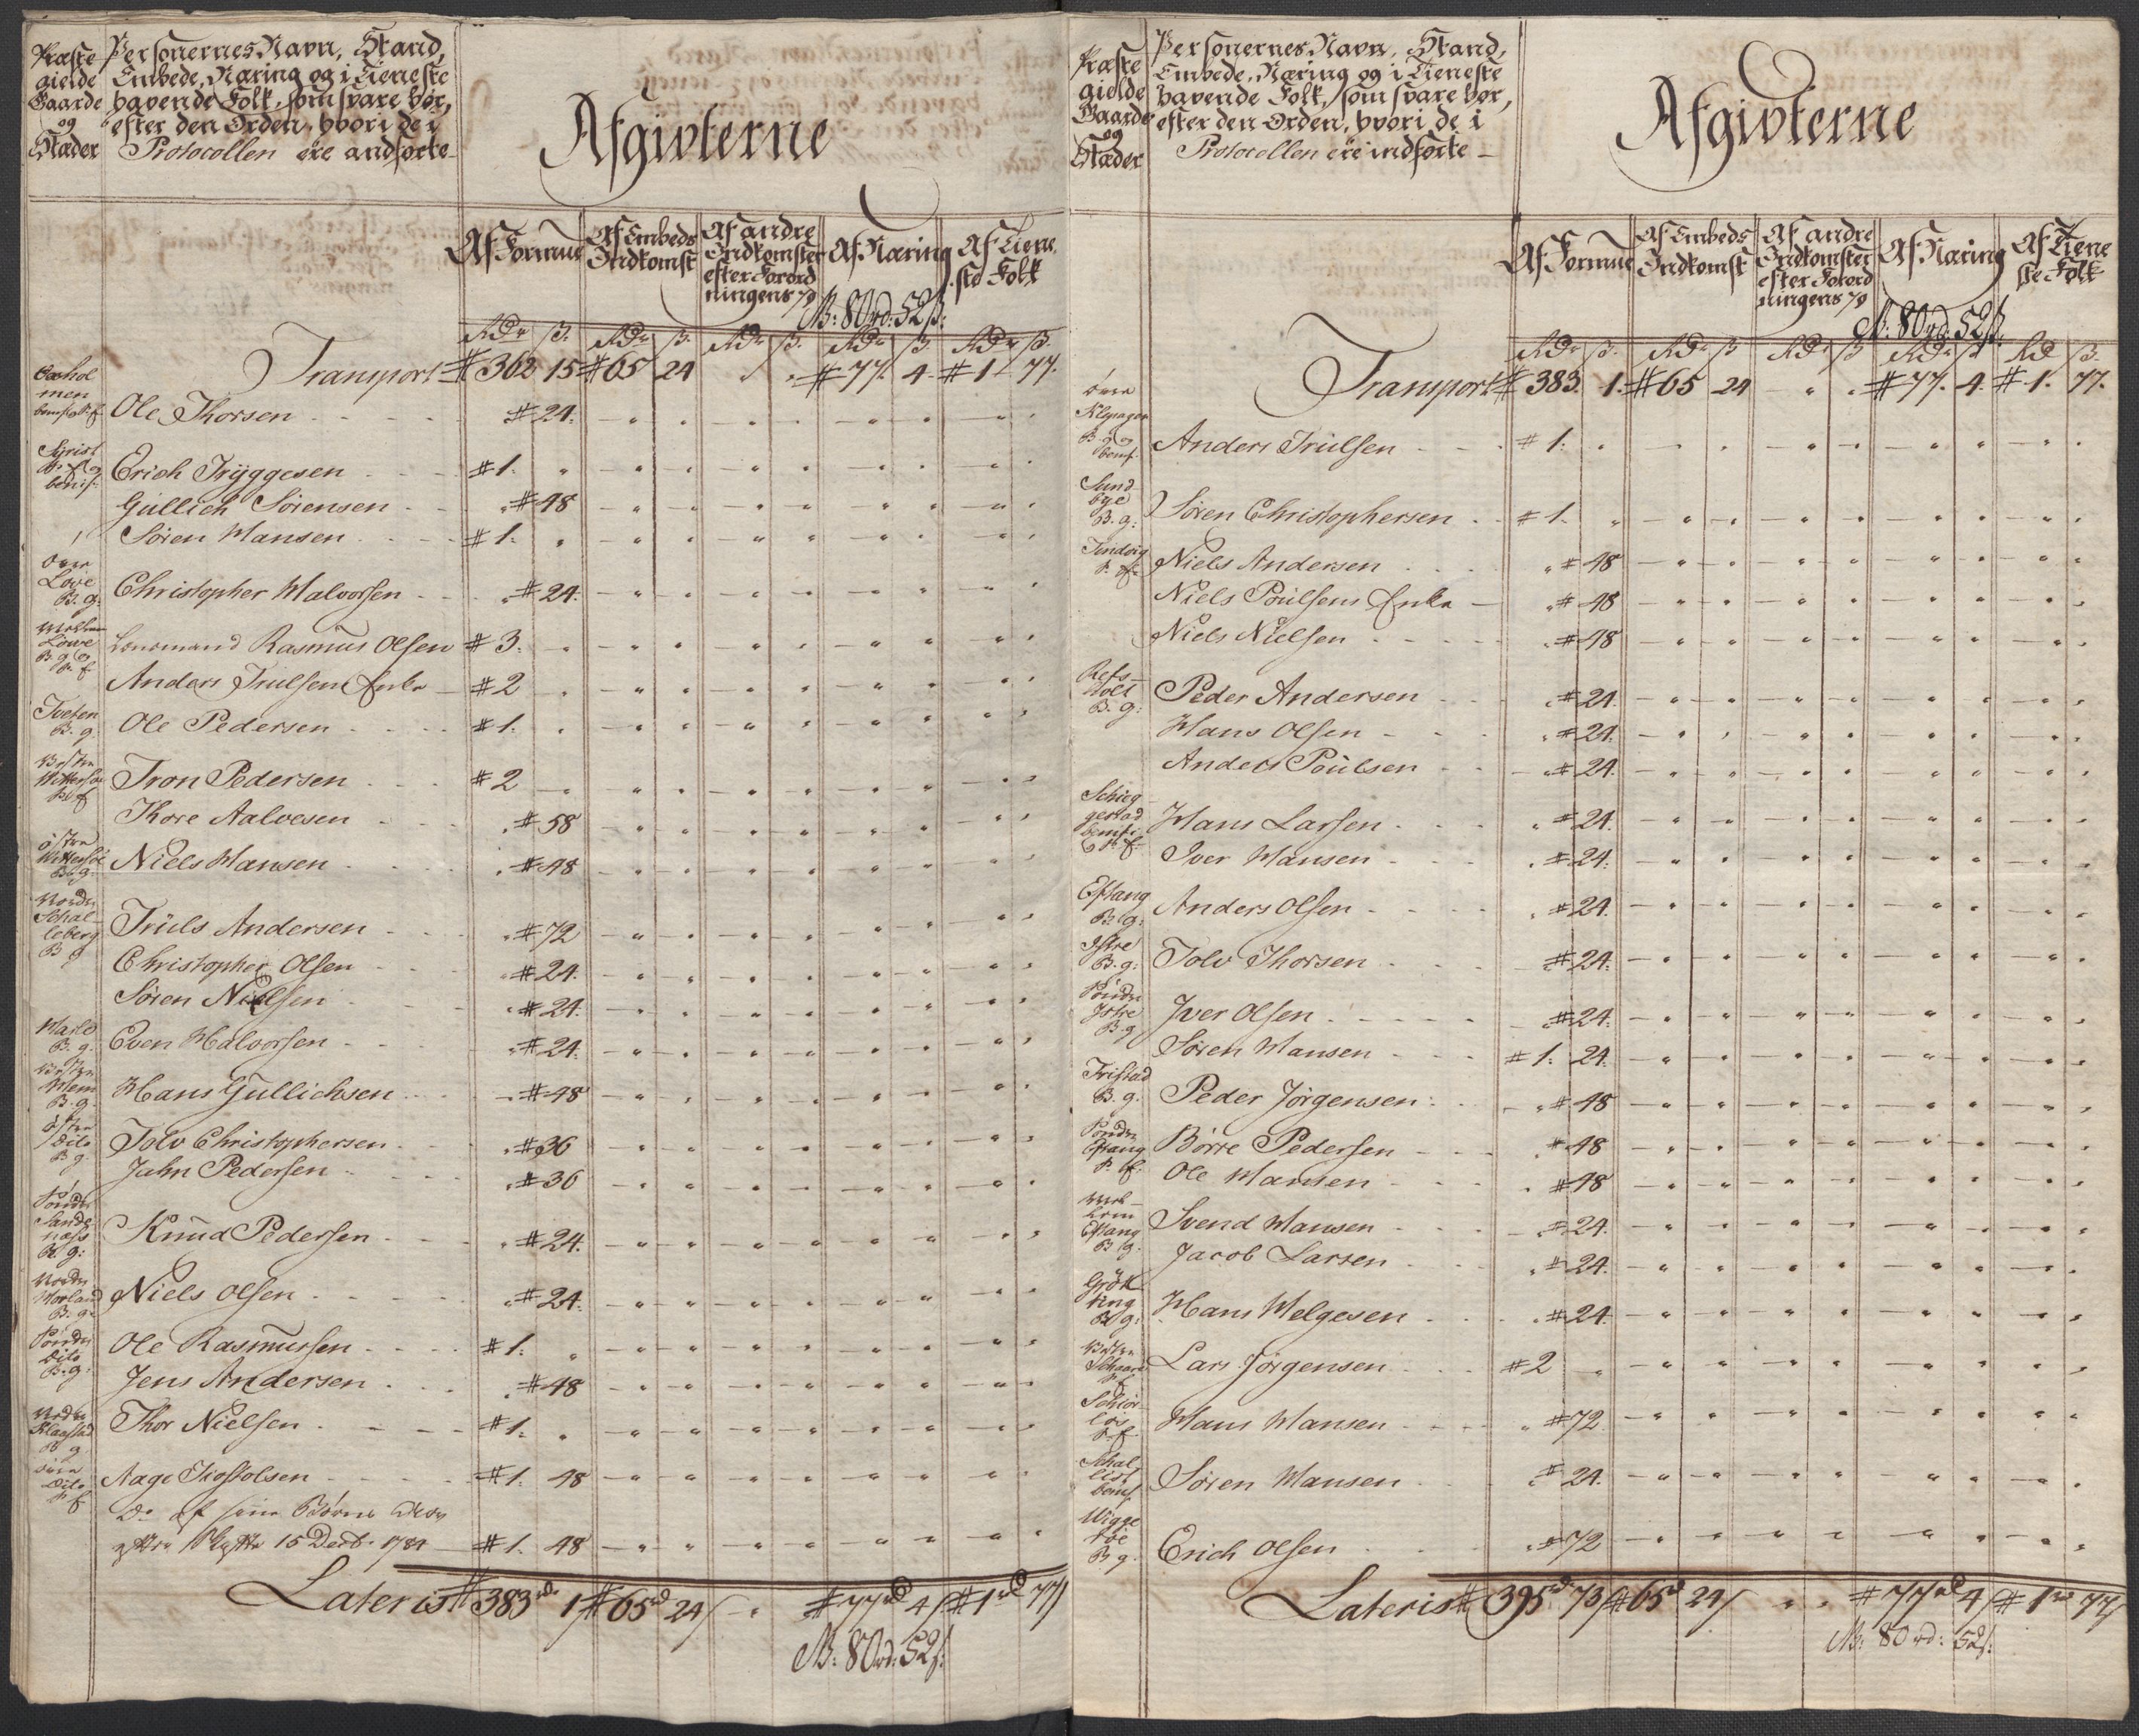 Præste
gielde
Gaarde
og
Stæder
Personernes Navn, Stand,
Embede, Næring og i Tieneste
havende Folk, som svare bør,
efter den Orden, hvori de i
Protocollen ere andførte
Afgivterne
Af Formue
Af Embeds Indkomst
Af andre Indkomster efter Forordningens 7 §
Af Næring
Af Tieneste Folk
NB: 80 rd: 52 s:
Rdr ß. Rdr ß. Rdr ß. Rdr ß Rdr ß.
Transport # 362 15 # 65 24 # 77. 4. # 1 77.
Ole Thorsen # 24.
Erich Tryggesen # 1.
Gullich Sørensen # 48
Søren Hansen # 1.
Over Löve B. g. Christopher Halvorsen # 24.
Löwe B. g. og Lensmand Rasmus Olsen # 3.
Anders Trulsens Enke # 2
Tveten B. g. Ole Pedersen # 1.
Tron Pedersen # 2
Thore Aalvesen # 58
Niels Hansen # 48
Schalleberg B g Truls Andersen # 72
Christopher Olsen # 24.
Søren Nielsen # 24.
B. g. Even Halvorsen # 24.
B. g. Hans Gullichsen # 48
Dito B g. Tolv Christophersen # 36
Jahn Pedersen # 36
Sönder Sandenæss B g: Knud Pedersen # 24.
B. g. Niels Olsen # 24.
Sönder Dito B. g. Ole Rasmussen # 1.
Jens Andersen # 48
Klaastad B g Thor Nielsen # 1.
Dito Aage Tiostolsen # 1. 48
Do af sine Børns
Skifte 15 Decb. 1784 # 1. 48
Lateris # 383 rd 1 # 65 rd 24 # 77 rd 4 # 1 rd 77
NB: 80 rd: 52 s:
Præste
gielde
Gaarde
og
Stæder
Personernes Navn, Stand,
Embede, Næring og i Tieneste
havende Folk, som svare bør,
efter den Orden, hvori de i
Protocollen ere indførte
Afgivterne
Af Formue
Af Embeds Indkomst
Af andre Indkomster efter Forordningens 7 §
Af Næring
Af Tieneste Folk
NB: 80 rd: 52 ß.
Rdr ß. Rdr ß Rdr ß Rdr ß Rd ß.
Transport # 383. 1. # 65 24 # 77. 4. # 1. 77.
Anders Trulsen # 1.
Sundbye B. g: Søren Christophersen # 1.
Tindvig Niels Andersen # 48
Niels Poulsens Enke # 48
Niels Nielsen # 48
Refsholt B. g: Peder Andersen # 24.
Hans Olsen # 24.
Anders Poulsen # 24.
Schieggestad Hans Larsen # 24.
Iver Hansen # 24.
Eftang B g: Anders Olsen # 24.
Istre B. g: Tolv Thorsen # 24.
Sönder Istre B g Iver Olsen # 24.
Søren Hansen # 1. 24.
Tristad B. g. Peder Jörgensen # 48
Sönder Eftang Börre Pedersen # 48
Ole Hansen # 48
Mellem Eftang B g. Svend Hansen # 24.
Jacob Larsen # 24.
B g: Hans Helgesen # 24.
Lars Jörgensen # 2
Hans Hansen # 72
Søren Hansen # 24.
B g. Erich Olsen # 72
Lateris # 395 rd 73 # 65 rd 24 # 77 rd 4 # 1 rd 77
NB: 80 rd: 52 s: